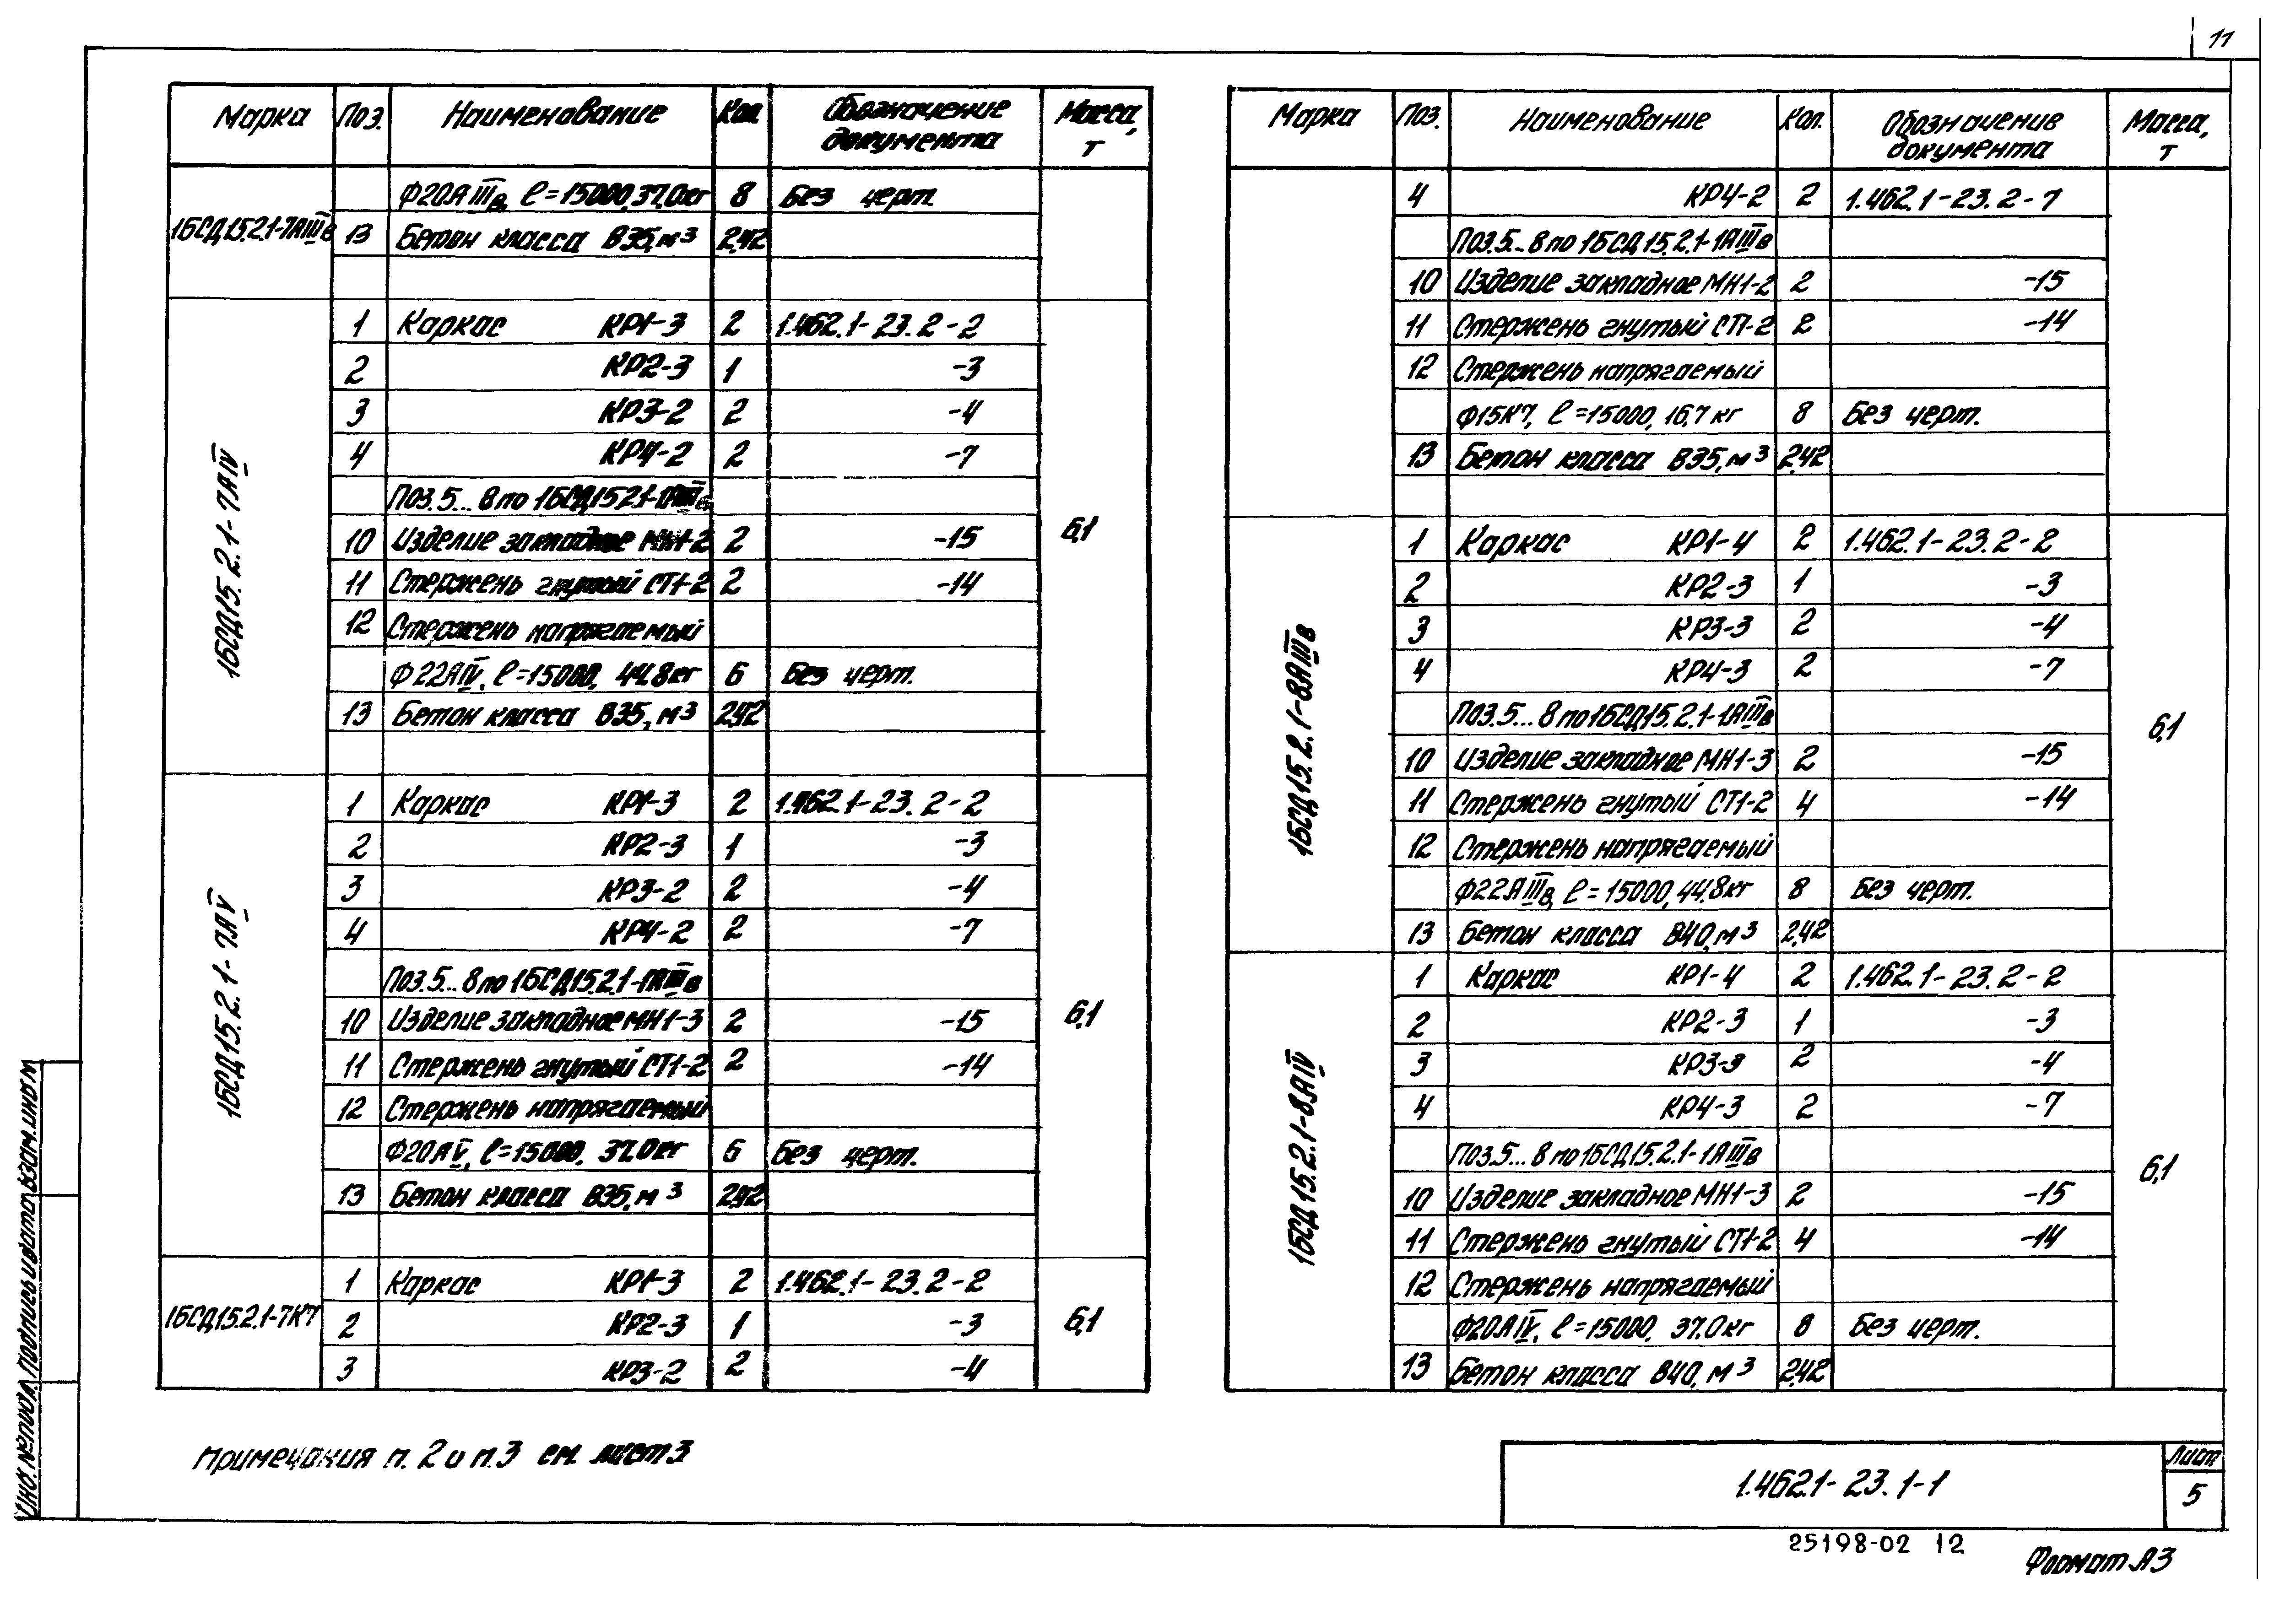 11
Марка Поз. Наименование Кол. Обозначение документа Масса, т
1БСД15.2.1-7АIIIв
Ф20АIIIв, ℓ=15000, 37.0кг 8 Без черт.
13 Бетон класса В35, м³ 2,42
1БСД15.2.1-7АIV
1 Каркас КР1-3 2 1.462.1-23.2-2
2 КР2-3 1 -3
3 КР3-2 2 -4
4 КР4-2 2 -7
Поз.5...8 по 1БСД15.2.1-1АIIIв
10 Изделие закладное МН1-2 2 -15
6,1
11 Стержень гнутый СТ1-2 2 -14
12 Стержень напрягаемый
Ф22АIV, ℓ=15000, 44.8кг 6 Без черт.
13 Бетон класса В35, м³ 2,42
1БСД15.2.1-7АV
1 Каркас КР1-3 2 1.462.1-23.2-2
2 КР2-3 1 -3
3 КР3-2 2 -4
4 КР4-2 2 -7
Поз.5...8 по 1БСД15.2.1-1АIIIв
10 Изделие закладное МН1-3 2 -15
6,1
11 Стержень гнутый СТ1-2 2 -14
12 Стержень напрягаемый
Ф20АV, ℓ=15000, 37.0кг 6 Без черт.
13 Бетон класса В35, м³ 2,42
1БСД15.2.1-7К7
1 Каркас КР1-3 2 1.462.1-23.2-2
2 КР2-3 1 -3
6,1
3 КР3-2 2 -4
Марка Поз. Наименование Кол. Обозначение документа Масса, т
4 КР4-2 2 1.462.1-23.2-7
Поз.5...8 по 1БСД15.2.1-1АIIIв
10 Изделие закладное МН1-2 2 -15
11 Стержень гнутый СТ1-2 2 -14
12 Стержень напрягаемый
Ф15К7, ℓ=15000, 16,7 кг 8 Без черт.
13 Бетон класса В35, м³ 2,42
1БСД15.2.1-8АIIIв
1 Каркас КР1-4 2 1.462.1-23.2-2
2 КР2-3 1 -3
3 КР3-3 2 -4
4 КР4-3 2 -7
Поз.5...8 по 1БСД15.2.1-1АIIIв
6,1
10 Изделие закладное МН1-3 2 -15
11 Стержень гнутый СТ1-2 4 -14
12 Стержень напрягаемый
Ф22АIIIв, ℓ=15000, 44.8кг 8 Без черт.
13 Бетон класса В40, м³ 2,42
1БСД15.2.1-8АIV
1 Каркас КР1-4 2 1.462.1-23.2-2
2 КР2-3 1 -3
3 КР3-3 2 -4
4 КР4-3 2 -7
Поз.5...8 по 1БСД15.2.1-1АIIIв
6,1
10 Изделие закладное МН1-3 2 -15
11 Стержень гнутый СТ1-2 4 -14
12 Стержень напрягаемый
Ф20АIV, ℓ=15000, 37.0кг 8 Без черт.
13 Бетон класса В40, м³ 2,42
Примечания п. 2 и п.3 см. лист 3
Инв. № подл. Подпись и дата Взам. инв №
1.462.1-23.1-1
Лист
5
25198-02 12
Формат А3